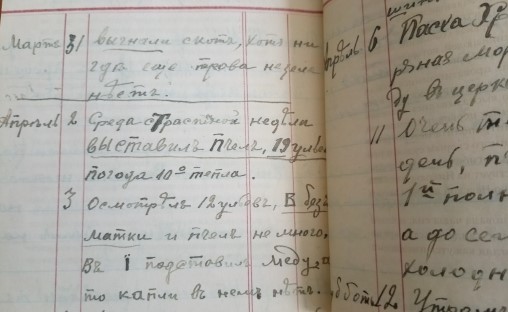 Мартъ 31 выгнали скота, хотя ни
гдѣ еще трова недела
нѣтъ.
Апрѣль 2 Среда страстной недѣли
выставилъ пчелъ, 19 улье
погода 10° тепла.
3 Осмотрѣлъ 12 ульевъ, в без
матки и пчелъ немного,
Въ 1 подставилъ меду, а
то капли въ немъ нѣтъ.
6 Пасха Хр
рузная мор
ду въ церк
11 Очень т
день, п
1й пол
а до се
холодн
12 Утром